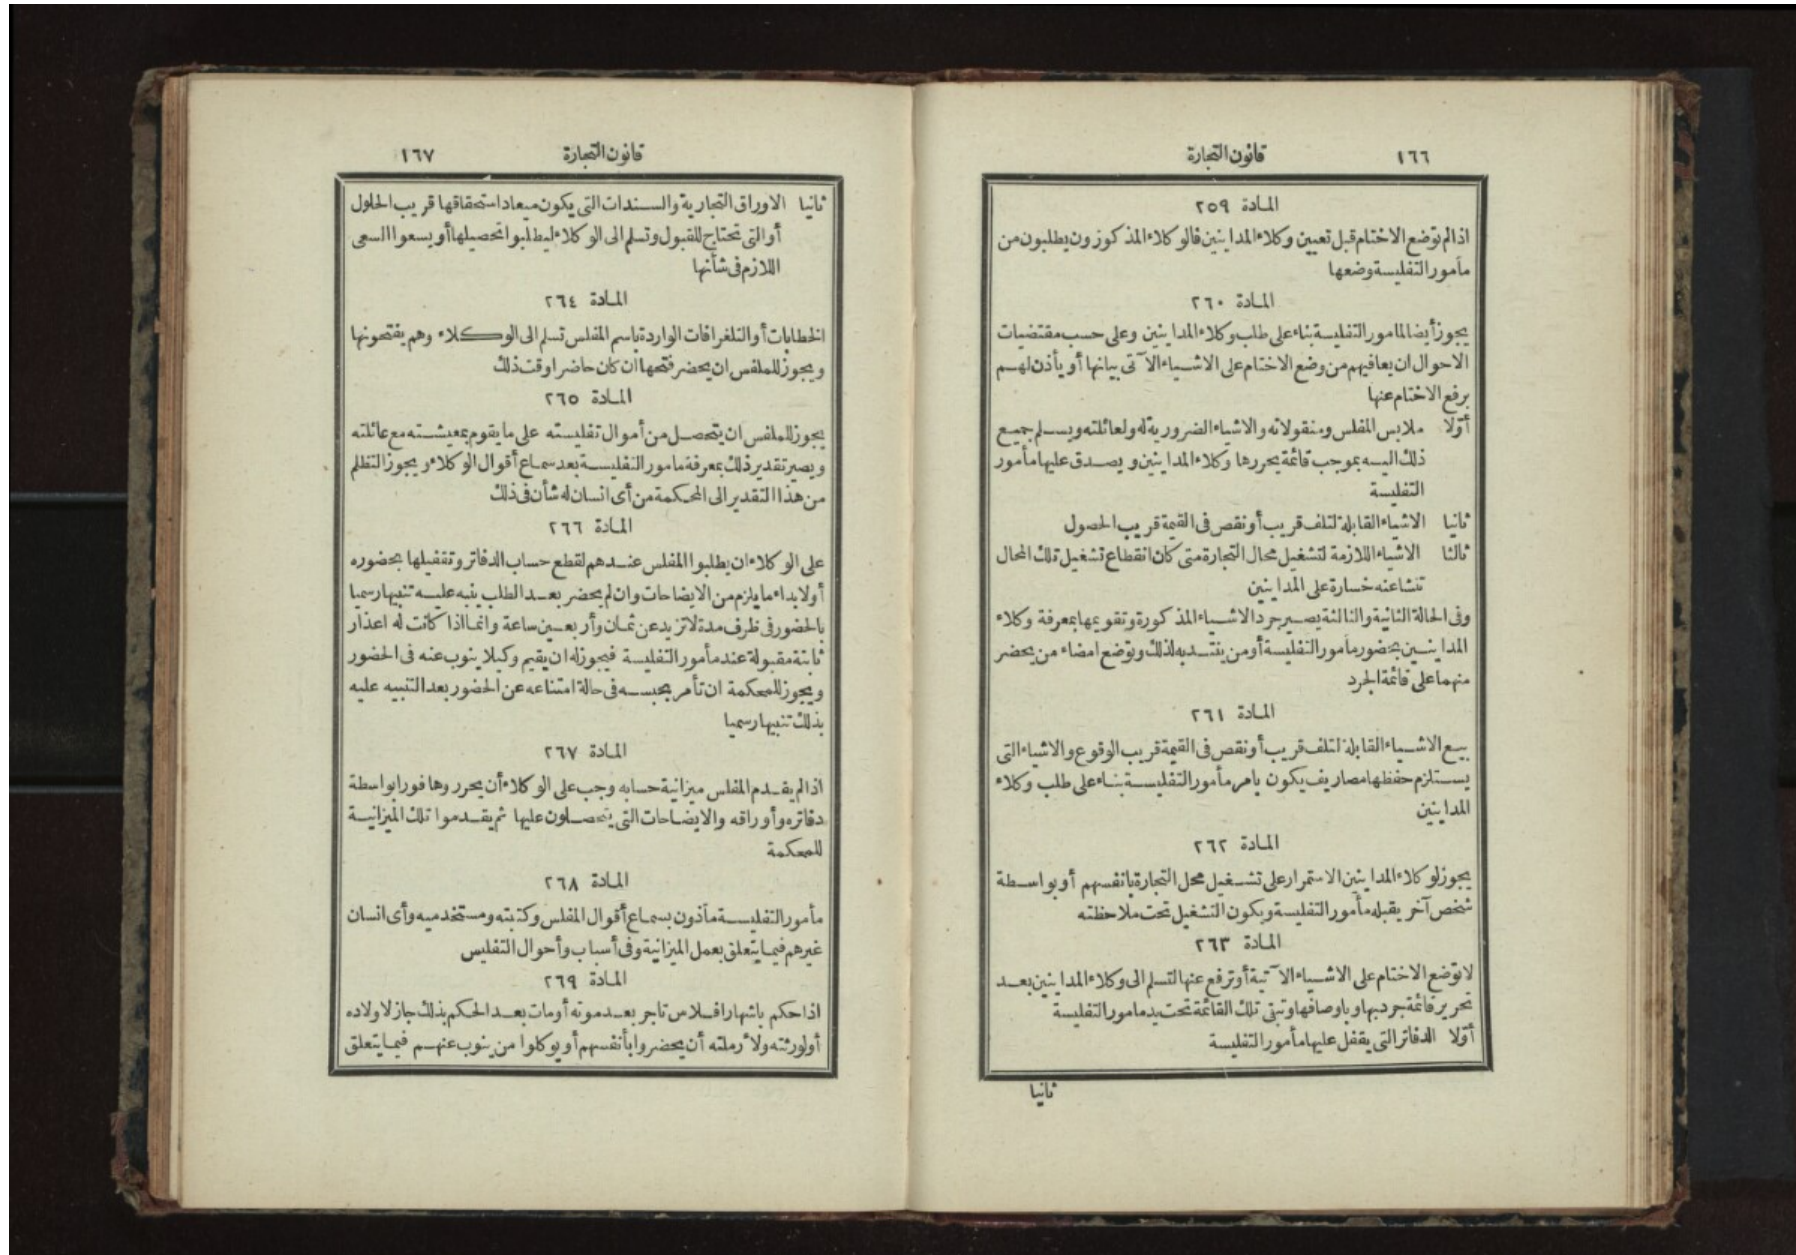 ١٦٦ قانون التجارة
المادة ٢٥٩
اذا لم توضع الاختام قبل تعيين وكلاء المداينين فالوكلاء المذكورون يطلبون من
مأمور التفليسة وضعها
المادة ٢٦٠
يجوز أيضا لمامور التفليسة بناء على طلب وكلاء المداينين وعلى حسب مقتضيات
الاحوال ان يعافيهم من وضع الاختام على الاشياء الآتى بيانها أو يأذن لهم
برفع الاختام عنها
أوّلا ملابس المفلس ومنقولاته والاشياء الضرورية له ولعائلته ويسلم جميع
ذلك اليه بموجب قائمة يحررها وكلاء المداينين ويصدق عليها مأمور
التفليسة
ثانيا الاشياء القابلة لتلف قريب أو نقص فى القيمة قريب الحصول
ثالثا الاشياء اللازمة لتشغيل محال التجارة متى كان انقطاع تشغيل تلك المحال
تنشا عنه خسارة على المداينين
وفى الحالة الثانية والثالثة يصير جرد الاشياء المذكورة وتقويمها بمعرفة وكلاء
المداينين بحضور مأمور التفليسة أو من ينتدبه لذلك وتوضع امضاء من يحضر
منهما على قائمة الجرد
المادة ٢٦١
بيع الاشياء القابلة لتلف قريب أو نقص فى القيمة قريب الوقوع والاشياء التى
يستلزم حفظها مصاريف يكون بامر مأمور التفليسة بناء على طلب وكلاء
المداينين
المادة ٢٦٢
يجوز لوكلاء المداينين الاستمرار على تشغيل محل التجارة بانفسهم أو بواسطة
شخص آخر يقبله مأمور التفليسة ويكون التشغيل تحت ملاحظته
المادة ٢٦٣
لا توضع الاختام على الاشياء الآتية أو ترفع عنها لتسلم الى وكلاء المداينين بعد
تحرير قائمة جرد بها وباوصافها وتبقى تلك القائمة تحت يد مامور التفليسة
أوّلا الدفاتر التى يقفل عليها مأمور التفليسة
ثانيا
قانون التجارة ١٦٧
ثانيا الاوراق التجارية والسندات التى يكون ميعاد استحقاقها قريب الحلول
أو التى تحتاج للقبول وتسلم الى الوكلاء ليطلبوا تحصيلها أو يسعوا السعى
اللازم فى شأنها
المادة ٢٦٤
الخطابات أو التلغرافات الواردة باسم المفلس تسلم الى الوكلاء وهم يفتحونها
ويجوز للمفلس ان يحضر فتحها ان كان حاضرا وقت ذلك
المادة ٢٦٥
يجوز للمفلس ان يتحصل من أموال تفليسته على ما يقوم بمعيشته مع عائلته
ويصير تقدير ذلك بمعرفة مامور التفليسة بعد سماع أقوال الوكلاء ويجوز التظلم
من هذا التقدير الى المحكمة من أى انسان له شأن فى ذلك
المادة ٢٦٦
على الوكلاء ان يطلبوا المفلس عندهم لقطع حساب الدفاتر وتقفيلها بحضوره
أو لابداء ما يلزم من الايضاحات وان لم يحضر بعد الطلب ينبه عليه تنبيها رسميا
بالحضور فى ظرف مدة لا تزيد عن ثمان وأربعين ساعة وانما اذا كانت له اعذار
ثابتة مقبولة عند مأمور التفليسة فيجوز له ان يقيم وكيلا ينوب عنه فى الحضور
ويجوز للمحكمة ان تأمر بحبسه فى حالة امتناعه عن الحضور بعد التنبيه عليه
بذلك تنبيها رسميا
المادة ٢٦٧
اذا لم يقدم المفلس ميزانية حسابه وجب على الوكلاء أن يحرروها فورا بواسطة
دفاتره وأوراقه والايضاحات التى يتحصلون عليها ثم يقدموا تلك الميزانية
للمحكمة
المادة ٢٦٨
مأمور التفليسة مأذون بسماع أقوال المفلس وكتبته ومستخدميه وأى انسان
غيرهم فيما يتعلق بعمل الميزانية وفى أسباب وأحوال التفليس
المادة ٢٦٩
اذا حكم باشهار افلاس تاجر بعد موته أو مات بعد الحكم بذلك جاز لاولاده
أو لورثته ولأرملته أن يحضروا بأنفسهم أو يوكلوا من ينوب عنهم فيما يتعلق